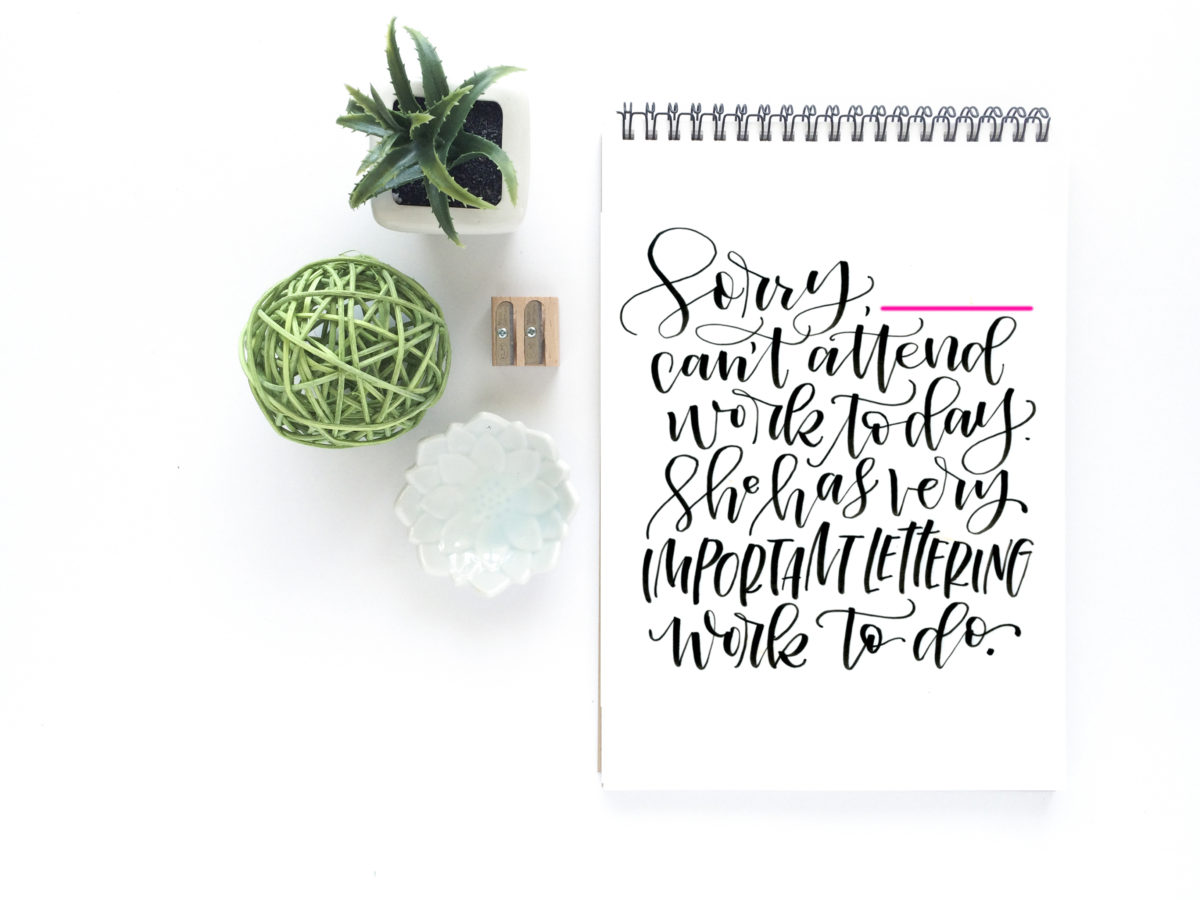 Sorry, ______
can't attend
work today.
She has very
IMPORTANT LETTERING
work to do.